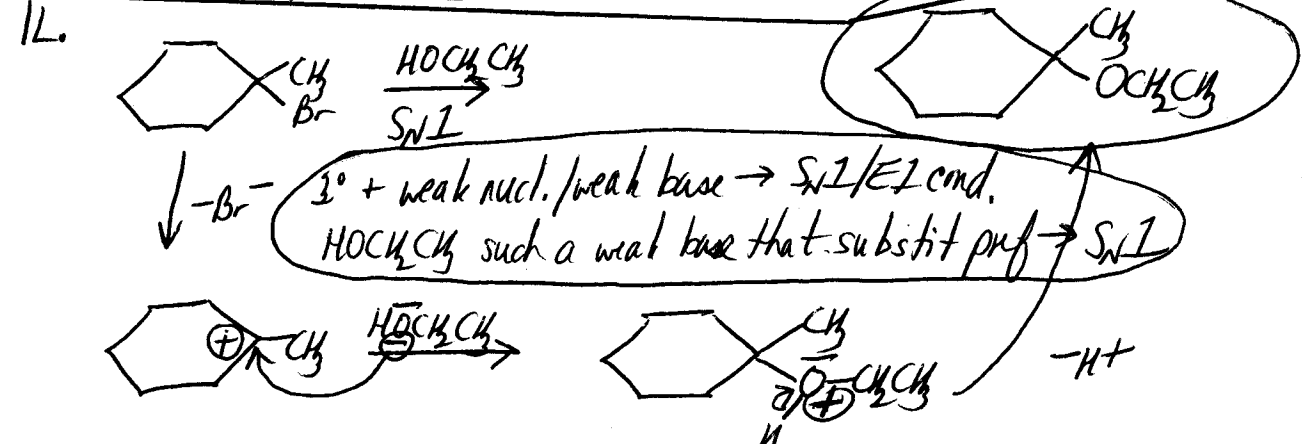 1L.
CH₃
Br
HOCH₂CH₃
S_N1
CH₃
OCH₂CH₃
-Br⁻
3° + weak nucl./weak base → S_N1/E1 cond.
HOCH₂CH₃ such a weak base that substit pref → S_N1
⊕ CH₃
HOCH₂CH₃
CH₃
O-CH₂CH₃
⊕
H
-H+